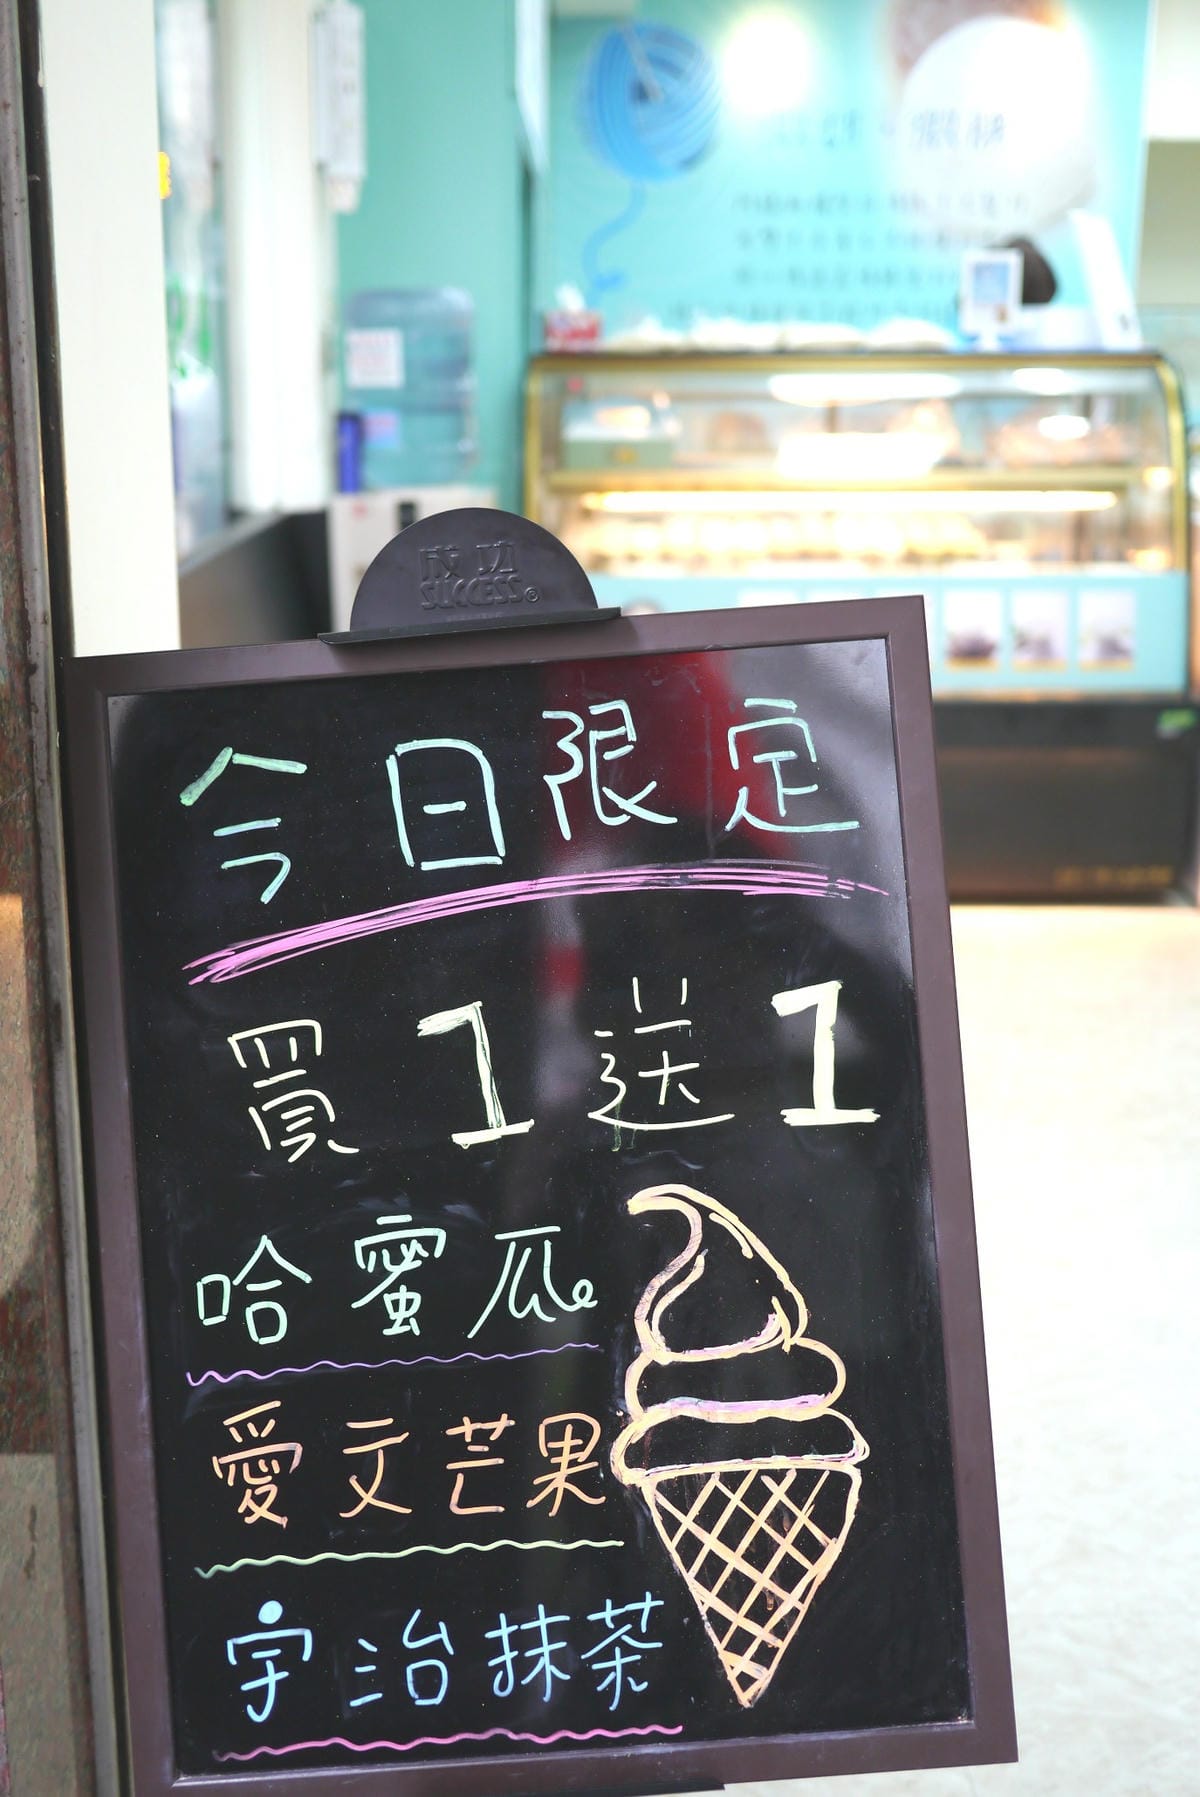 成功
SUCCESS®
今日限定
買1送1
哈蜜瓜
愛文芒果
宇治抹茶